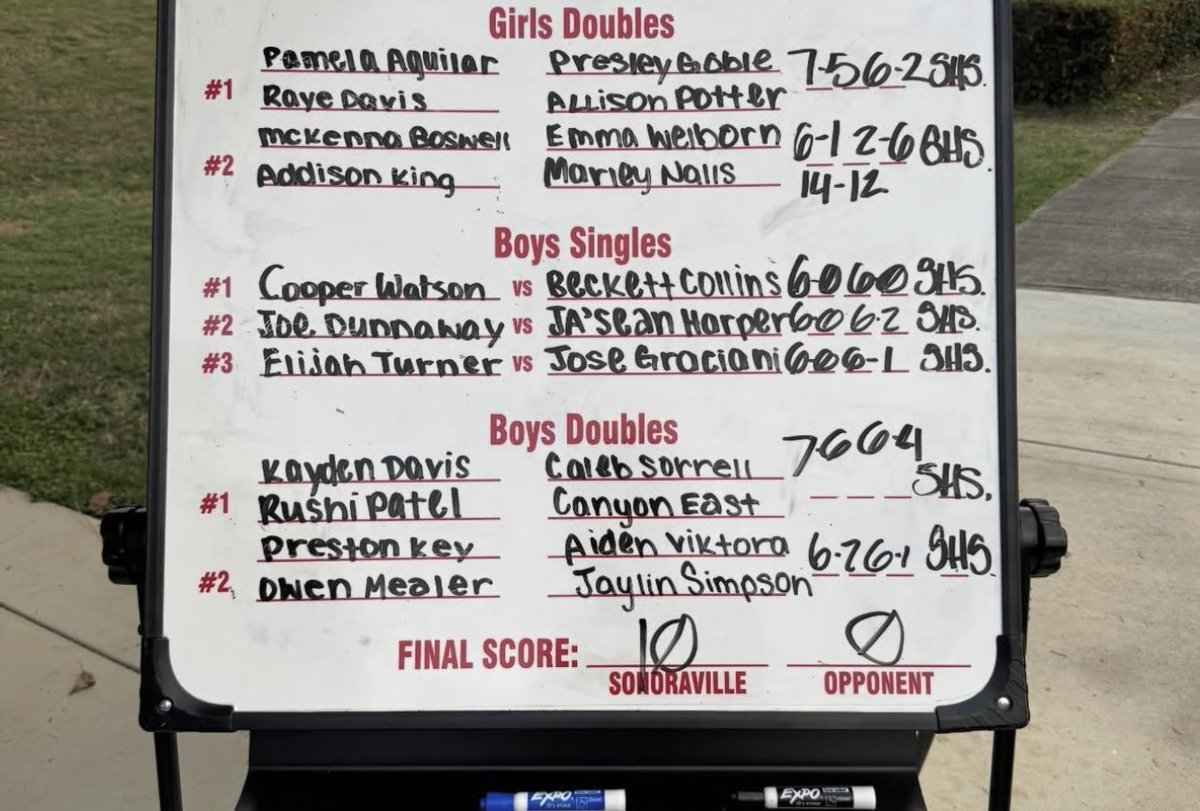 Girls Doubles
Pamela Aguilar Presley Goble 7-5 6-2 SHS.
#1 Raye Davis Allison Potter
McKenna Boswell Emma Welborn 6-1 2-6 SHS.
#2 Addison King Marley Nalls 14-12
Boys Singles
#1 Cooper Watson vs Beckett Collins 6-0 6-0 SHS.
#2 Joe Dunnaway vs JA'Sean Harper 6-0 6-2 SHS.
#3 Elijah Turner vs Jose Graciani 6-0 6-1 SHS.
Boys Doubles
Kayden Davis Caleb Sorrell 7-6 6-4
#1 Rushi Patel Canyon East SHS.
Preston Key Aiden Viktora 6-2 6-1 SHS
#2 Owen Mealer Jaylin Simpson
FINAL SCORE: 10 0
SONORAVILLE OPPONENT
EXPO dry erase EXPO dry erase